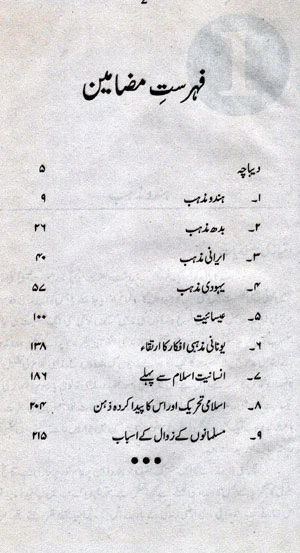 2
فہرستِ مضامین
دیباچہ ۵
۱۔ ہندو مذہب ۹
۲۔ بدھ مذہب ۲۶
۳۔ ایرانی مذہب ۴۰
۴۔ یہودی مذہب ۵۷
۵۔ عیسائیت ۱۰۰
۶۔ یونانی مذہبی افکار کا ارتقاء ۱۳۸
۷۔ انسانیت اسلام سے پہلے ۱۸۶
۸۔ اسلامی تحریک اور اس کا پیدا کردہ ذہن ۲۰۴
۹۔ مسلمانوں کے زوال کے اسباب ۲۱۵